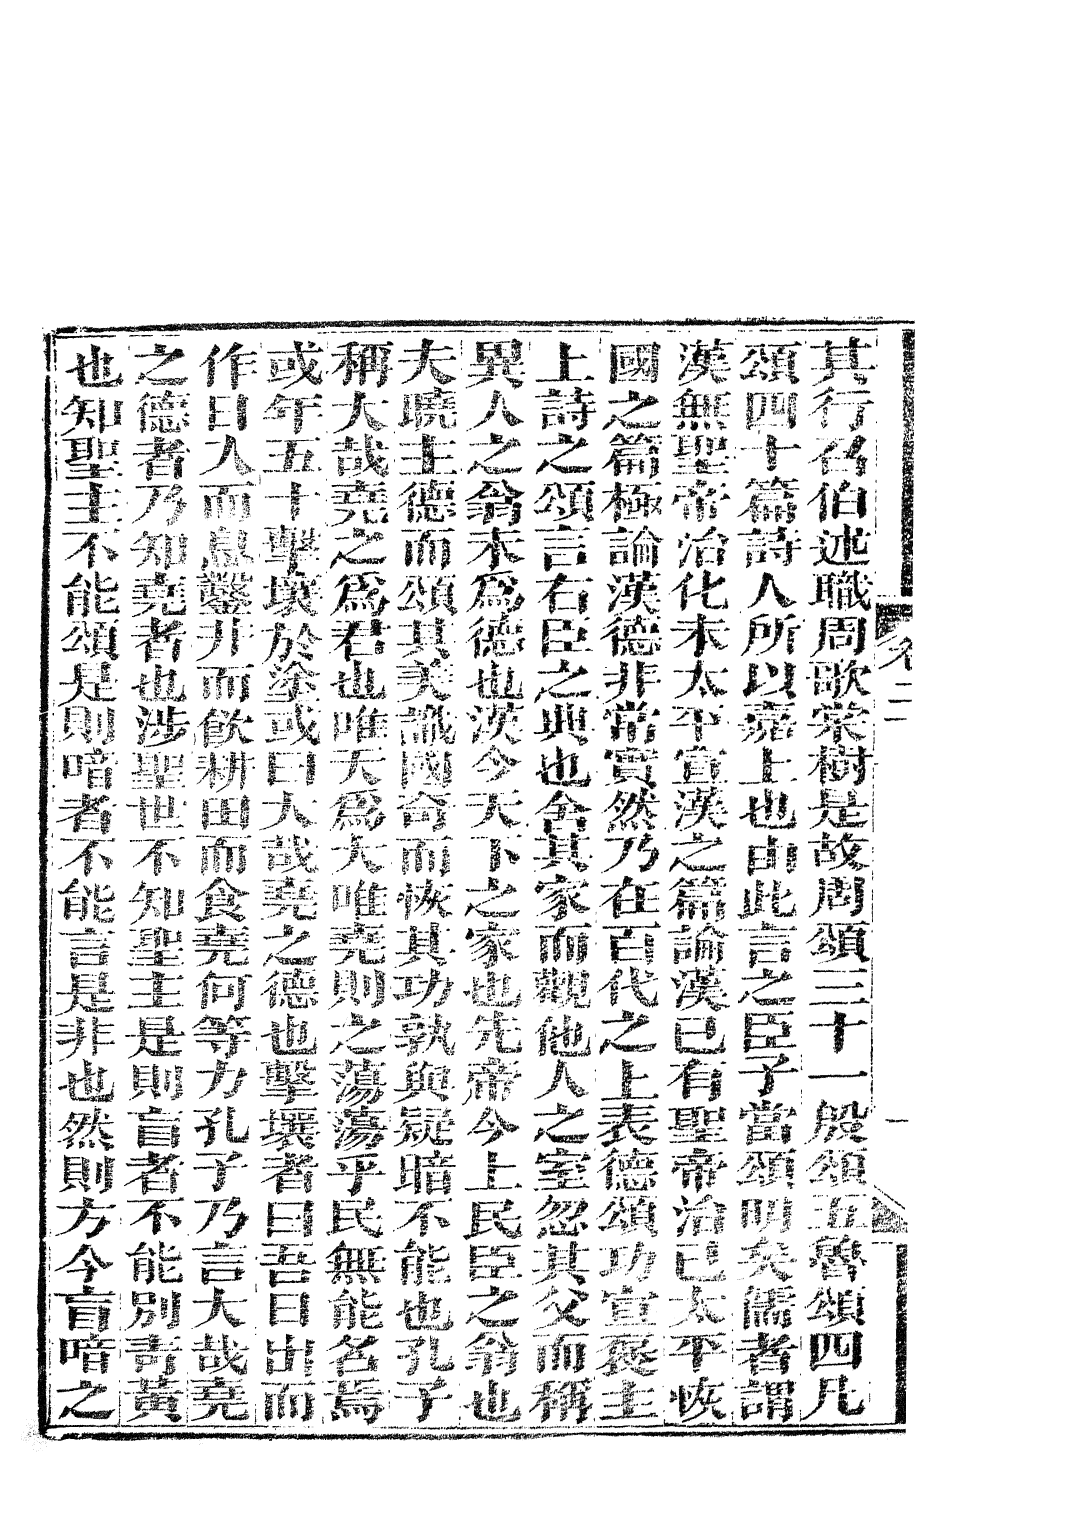 其行召伯述職周歌棠樹是故周頌三十一殷頌五魯頌四凡
頌四十篇詩人所以嘉上也由此言之臣子當頌明矣儒者謂
漢無聖帝治化未太平宣漢之篇論漢已有聖帝治已太平恢
國之篇極論漢德非常實然乃在百代之上表德頌功宣褒主
上詩之頌言右臣之典也舍其家而觀他人之室忽其父而稱
異人之翁未爲德也漢今天下之家也先帝今上民臣之翁也
夫曉主德而頌其美識國奇而恢其功孰與疑暗不能也孔子
稱大哉堯之爲君也唯天爲大唯堯則之蕩蕩乎民無能名焉
或年五十擊壤於塗或曰大哉堯之德也擊壤者曰吾日出而
作日入而息鑿井而飲耕田而食堯何等力孔子乃言大哉堯
之德者乃知堯者也涉聖世不知聖主是則盲者不能別青黃
也知聖主不能頌是則喑者不能言是非也然則方今盲喑之
卷二
一